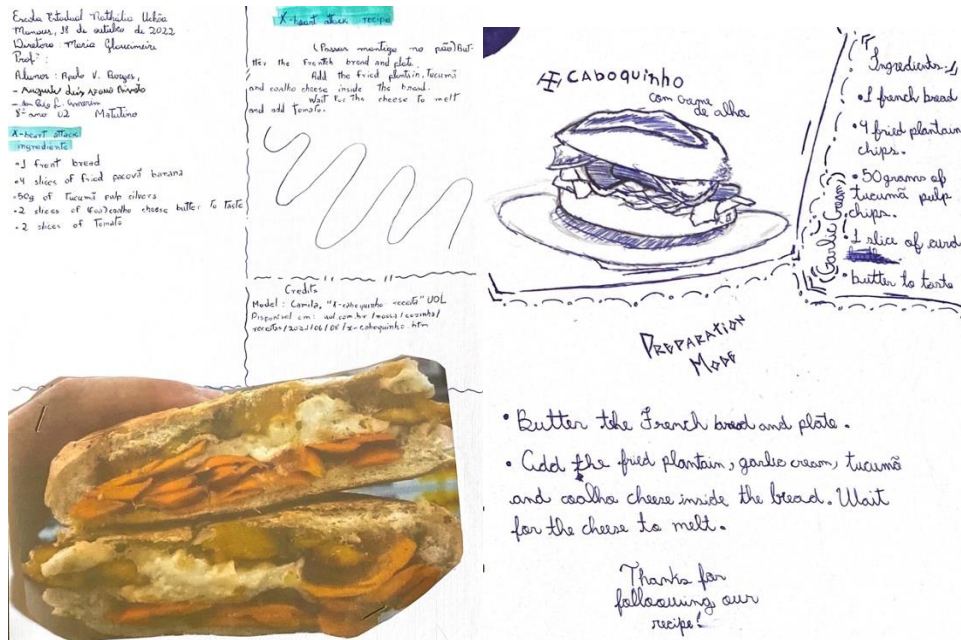 Escola Estadual Nathália Uchôa
Manaus, 18 de outubro de 2022
Diretora: Maria Glaucimeire
Prof°:
Alunos: Apolo V. Borges,
8° ano 02 Matutino
X-heart attack
ingredients
•1 frent bread
•4 slices of fried pacovã banana
•50g of Tucumã pulp
•2 slices of coalho cheese butter to taste
•2 slices of Tomato
X-heart attack recipe
(Passar manteiga no pão) But-
ter the French bread and plate.
Add the fried plantain, Tucumã
and coalho cheese inside the bread.
Wait for the cheese to melt
and add tomato.
Credits
Model: Camila, "X-caboquinho receita" UOL
Disponível em: uol.com.br/nossa/cozinha/
receitas/2021/06/08/x-caboquinho.htm
X CABOQUINHO
com creme
de alho
Ingredients:
•1 french bread
•4 fried plantain
chips.
•50 grams of
tucumã pulp
chips.
•1 slice of curd
•butter to taste
Garlic Cream
PREPARATION
MODE
•Butter the French bread and plate.
•Add the fried plantain, garlic cream, tucumã
and coalho cheese inside the bread. Wait
for the cheese to melt.
Thanks for
following our
recipe!